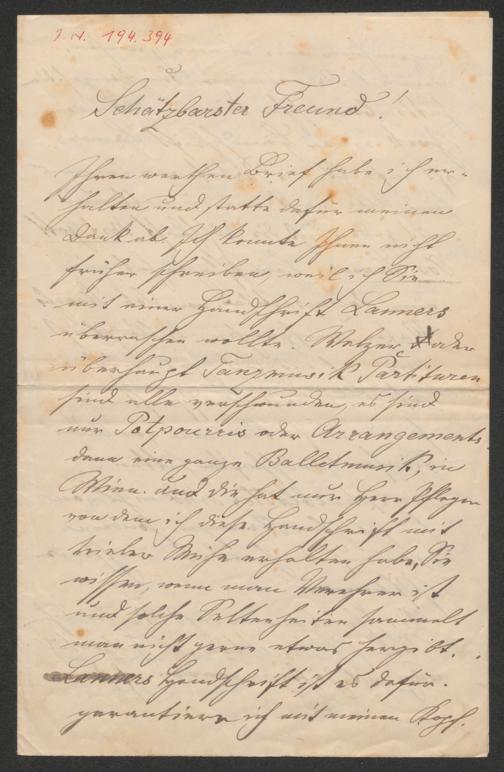 J. N. 194.394
Schätzbarster Freund!
Ihren werthen Brief habe ich er-
halten und statte dafür meinen
Dank ab. Ich konnte Ihnen nicht
früher schreiben, weil ich Sie
mit einer Handschrift Lanners
überraschen wollte. Walzer oder
überhaupt Tanzmusik Partituren
sind alle verschwunden, es sind
nur Potpourris oder Arrangements
dann eine ganze Balletmusik, in
Wien. und die hat nur Herr
von dem ich diese Handschrift mit
vieler Mühe erhalten habe, Sie
wissen, wenn man Verehrer ist
und solche Seltenheiten sammelt
man nicht gerne etwas hergibt.
Lanners Handschrift ist es dafür
garantiere ich mit meinen Kopf.